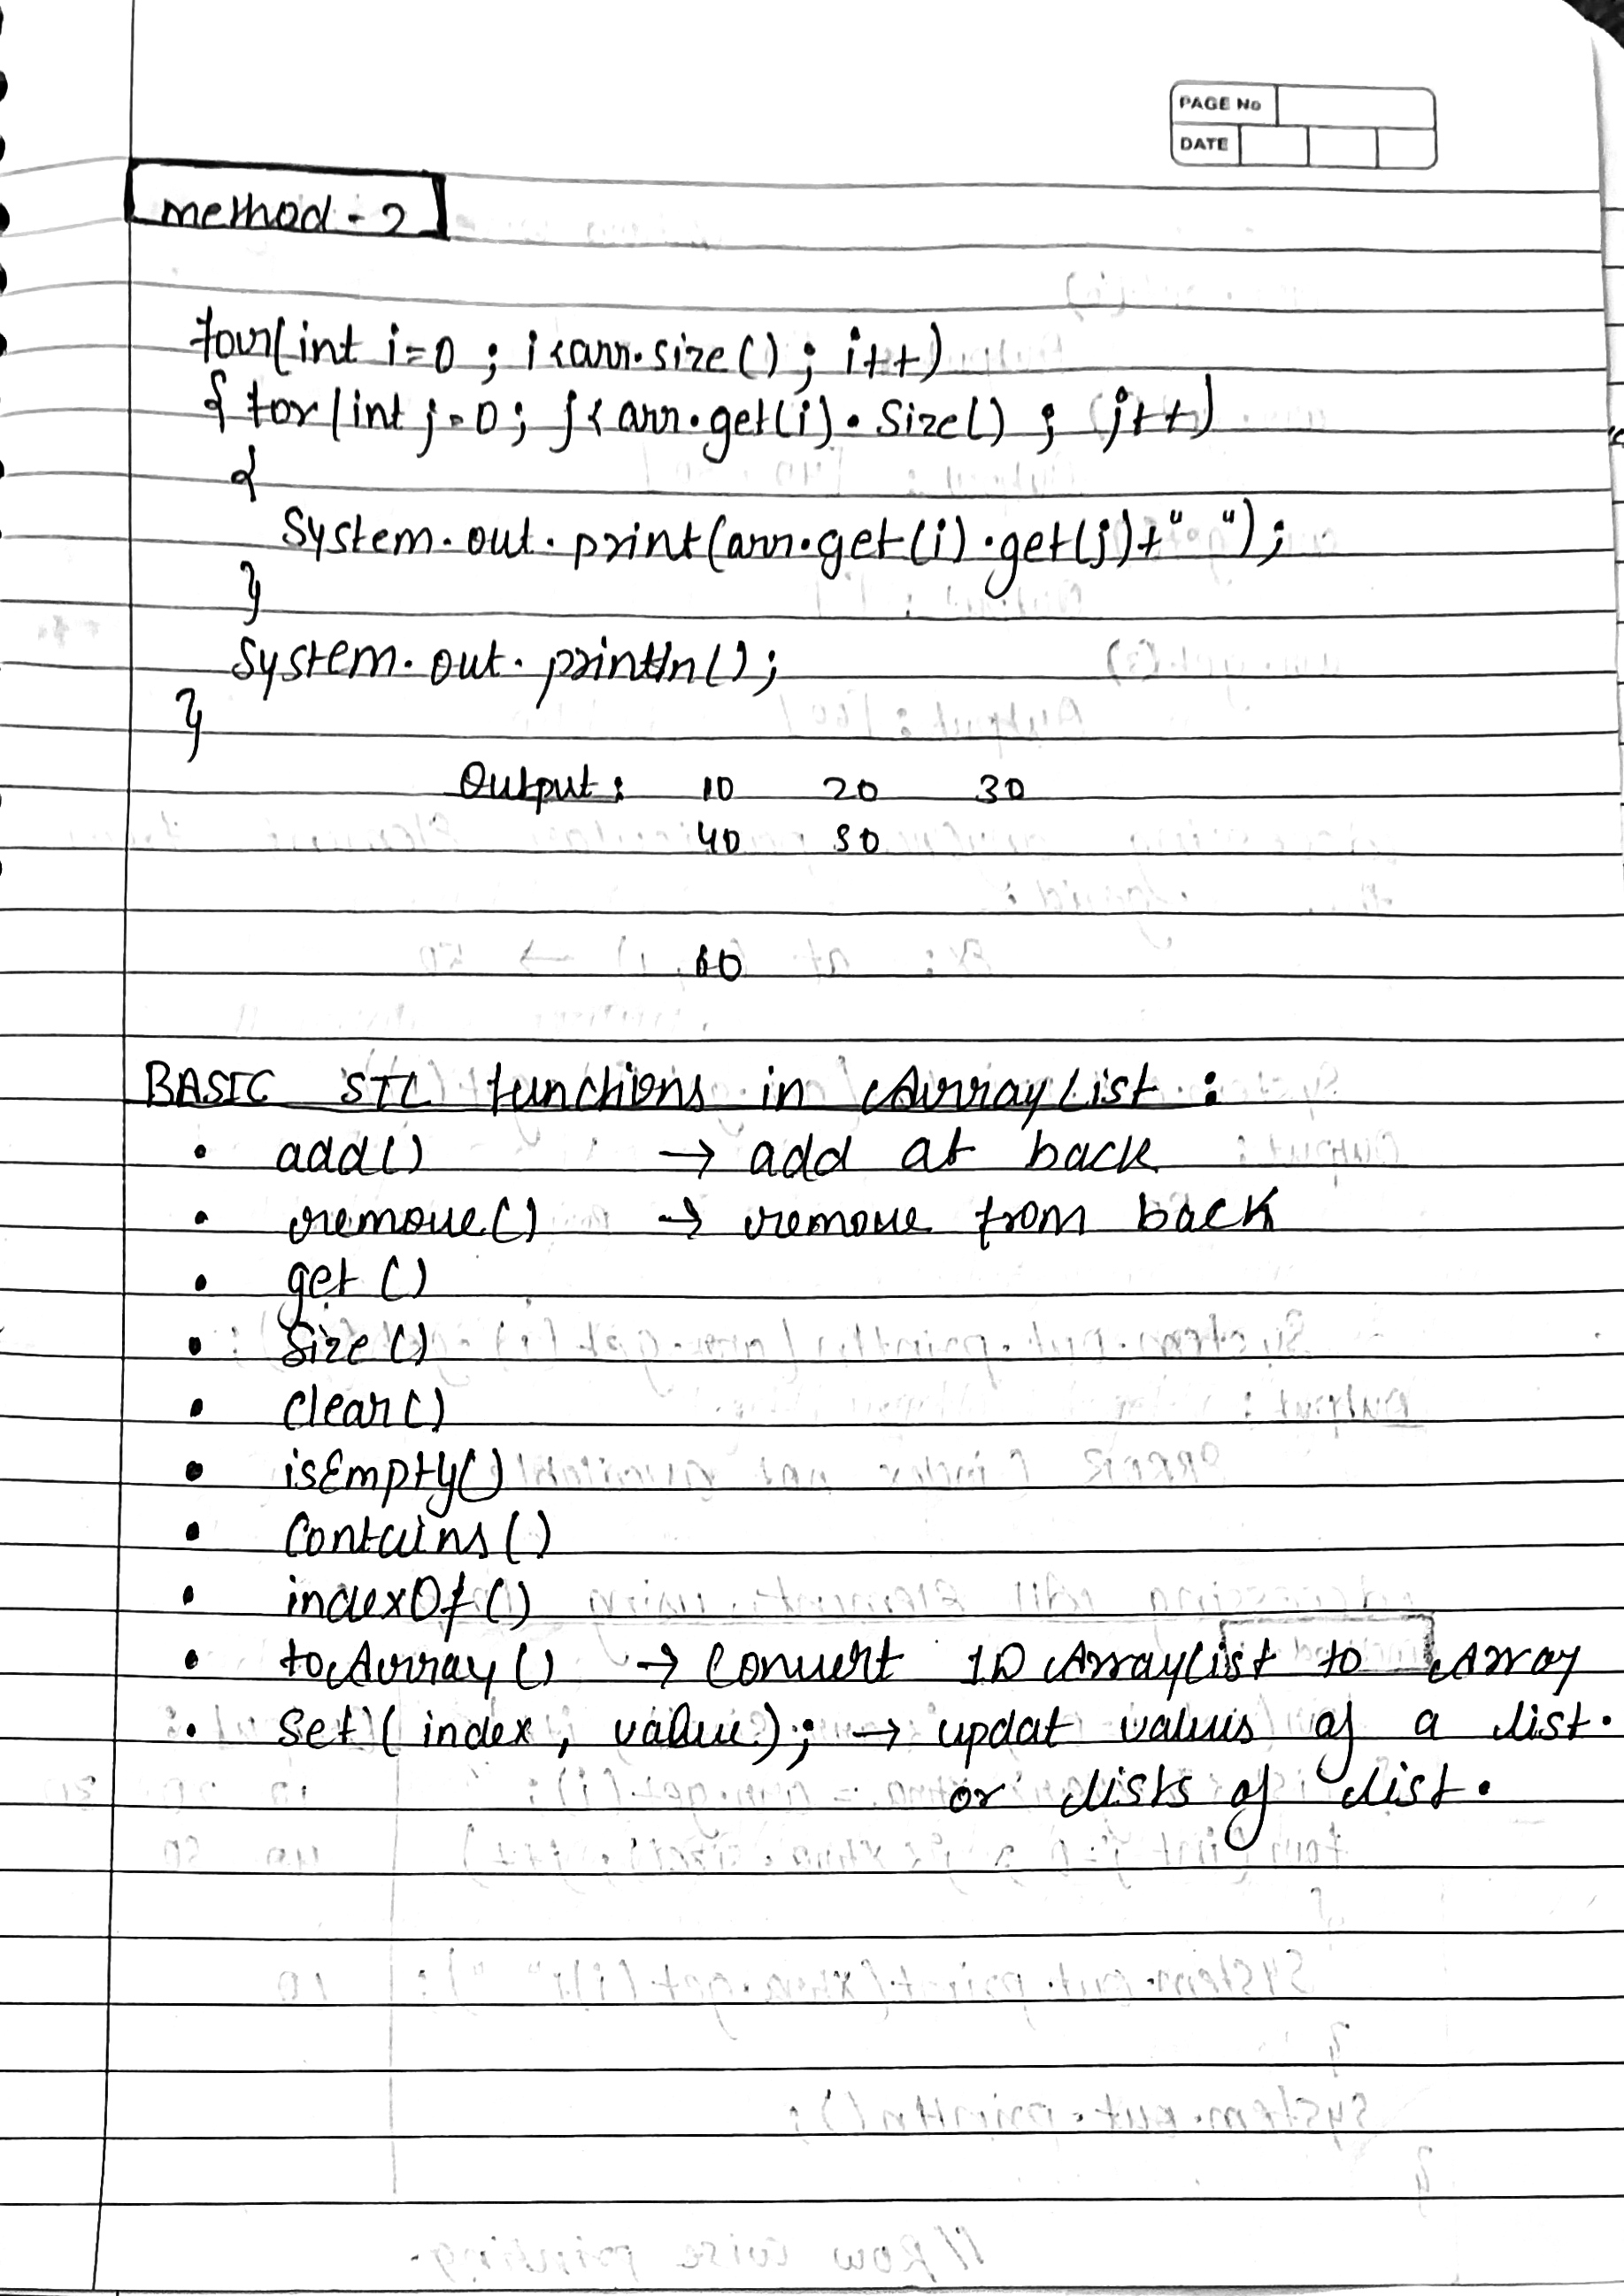 PAGE No
DATE
method - 2
for(int i=0 ; i<arr.size() ; i++)
{ for(int j=0; j<arr.get(i).size() ; j++)
{
System.out.print(arr.get(i).get(j)+" ");
}
System.out.println();
}
Output : 10 20 30
40 50
60
BASIC STL functions in ArrayList :
• add() → add at back
• remove() → remove from back
• get ()
• Size ()
• clear()
• isEmpty()
• Contains ()
• indexOf()
• toArray() → Convert 1D ArrayList to Array
• Set ( index, value); → updat values of a list.
or lists of list.